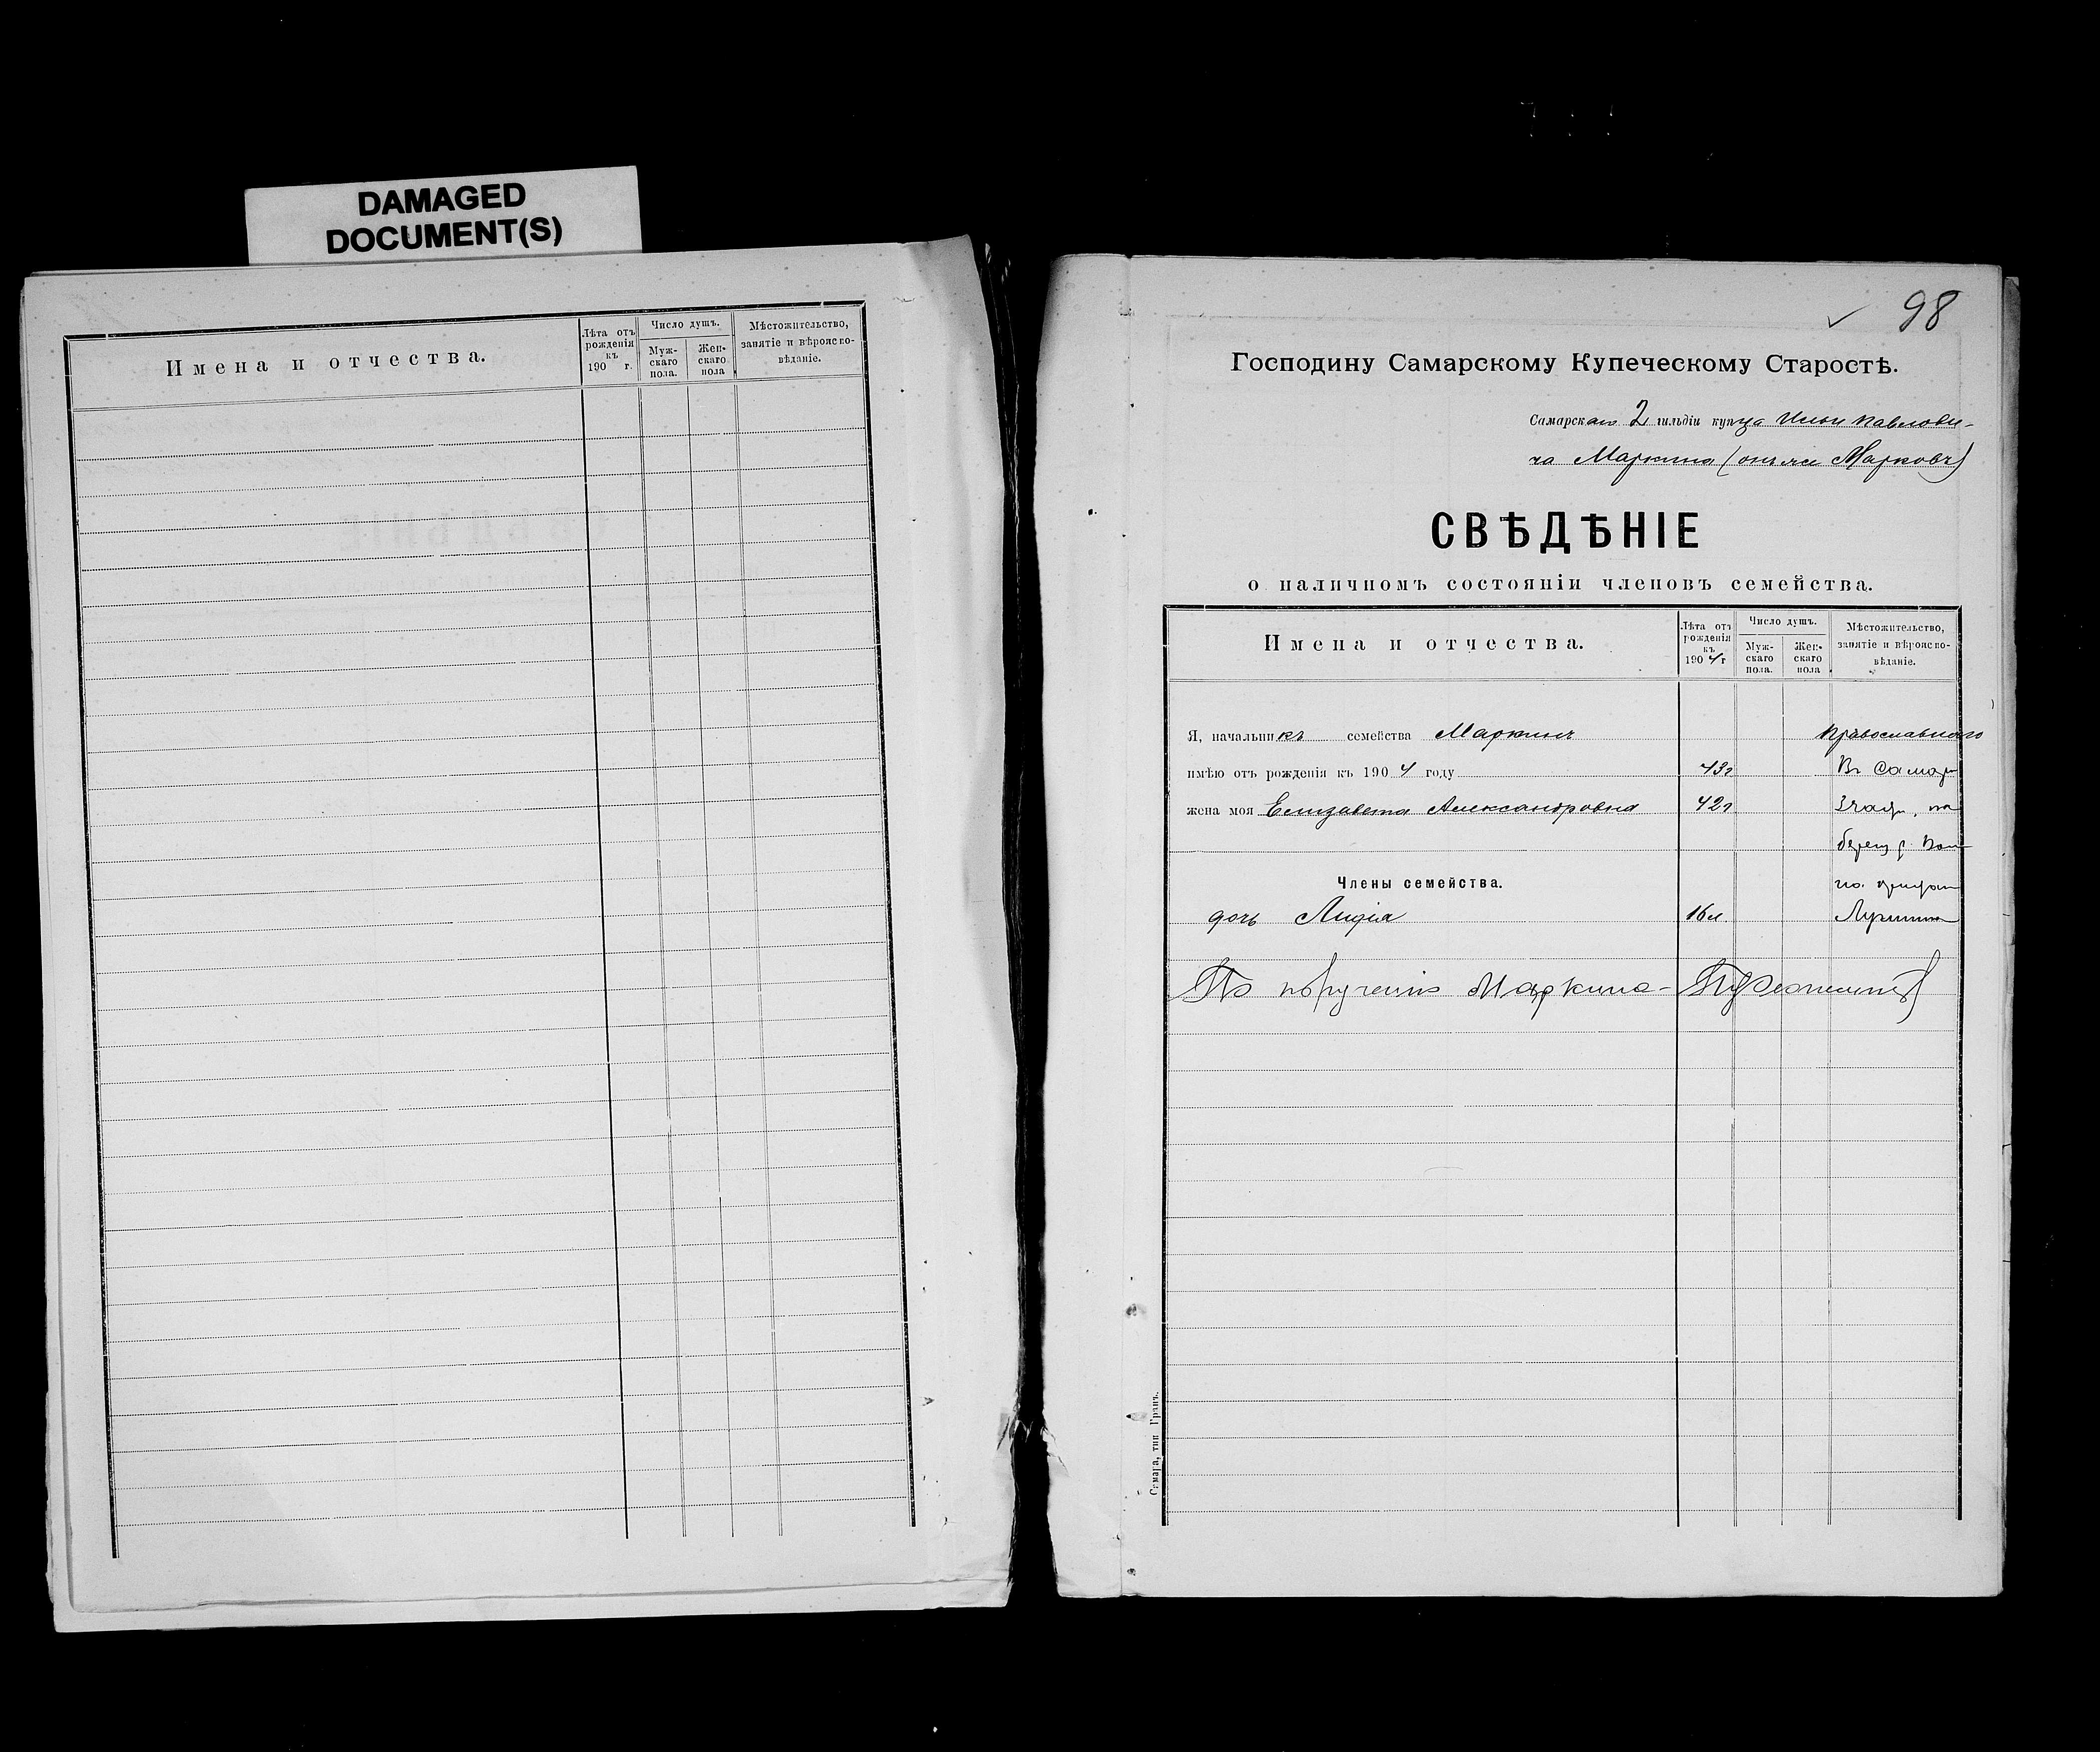 DAMAGED
DOCUMENT(S)
Имена и отчества.
Лѣта отъ рожденія къ 190 г.
Число душъ.
Мужскаго пола.
Женскаго пола
Мѣстожительство, занятіе и вѣроисповѣданіе.
98
Господину Самарскому Купеческому Старостѣ.
Самарскаго 2 гильдіи купца Ильи Павлови-
ча Маркина (онъ же Марковъ)
СВѢДѢНІЕ
о наличномъ состояніи членовъ семейства.
Имена и отчества.
Лѣта отъ рожденія къ 1904 г
Число душъ.
Мужскаго пола.
Женскаго пола
Мѣстожительство, занятіе и вѣроисповѣданіе.
Я, начальникъ семейства Маркинъ Православного
имѣю отъ рожденія къ 1904 году 43 г Въ Самар
жена моя Елизавета Александровна 42 г 3 част, на
берегу р. Вол
Члены семейства.
дочь Лидія 16 л.
По порученію Маркина -
Самара, тип. Гранъ.